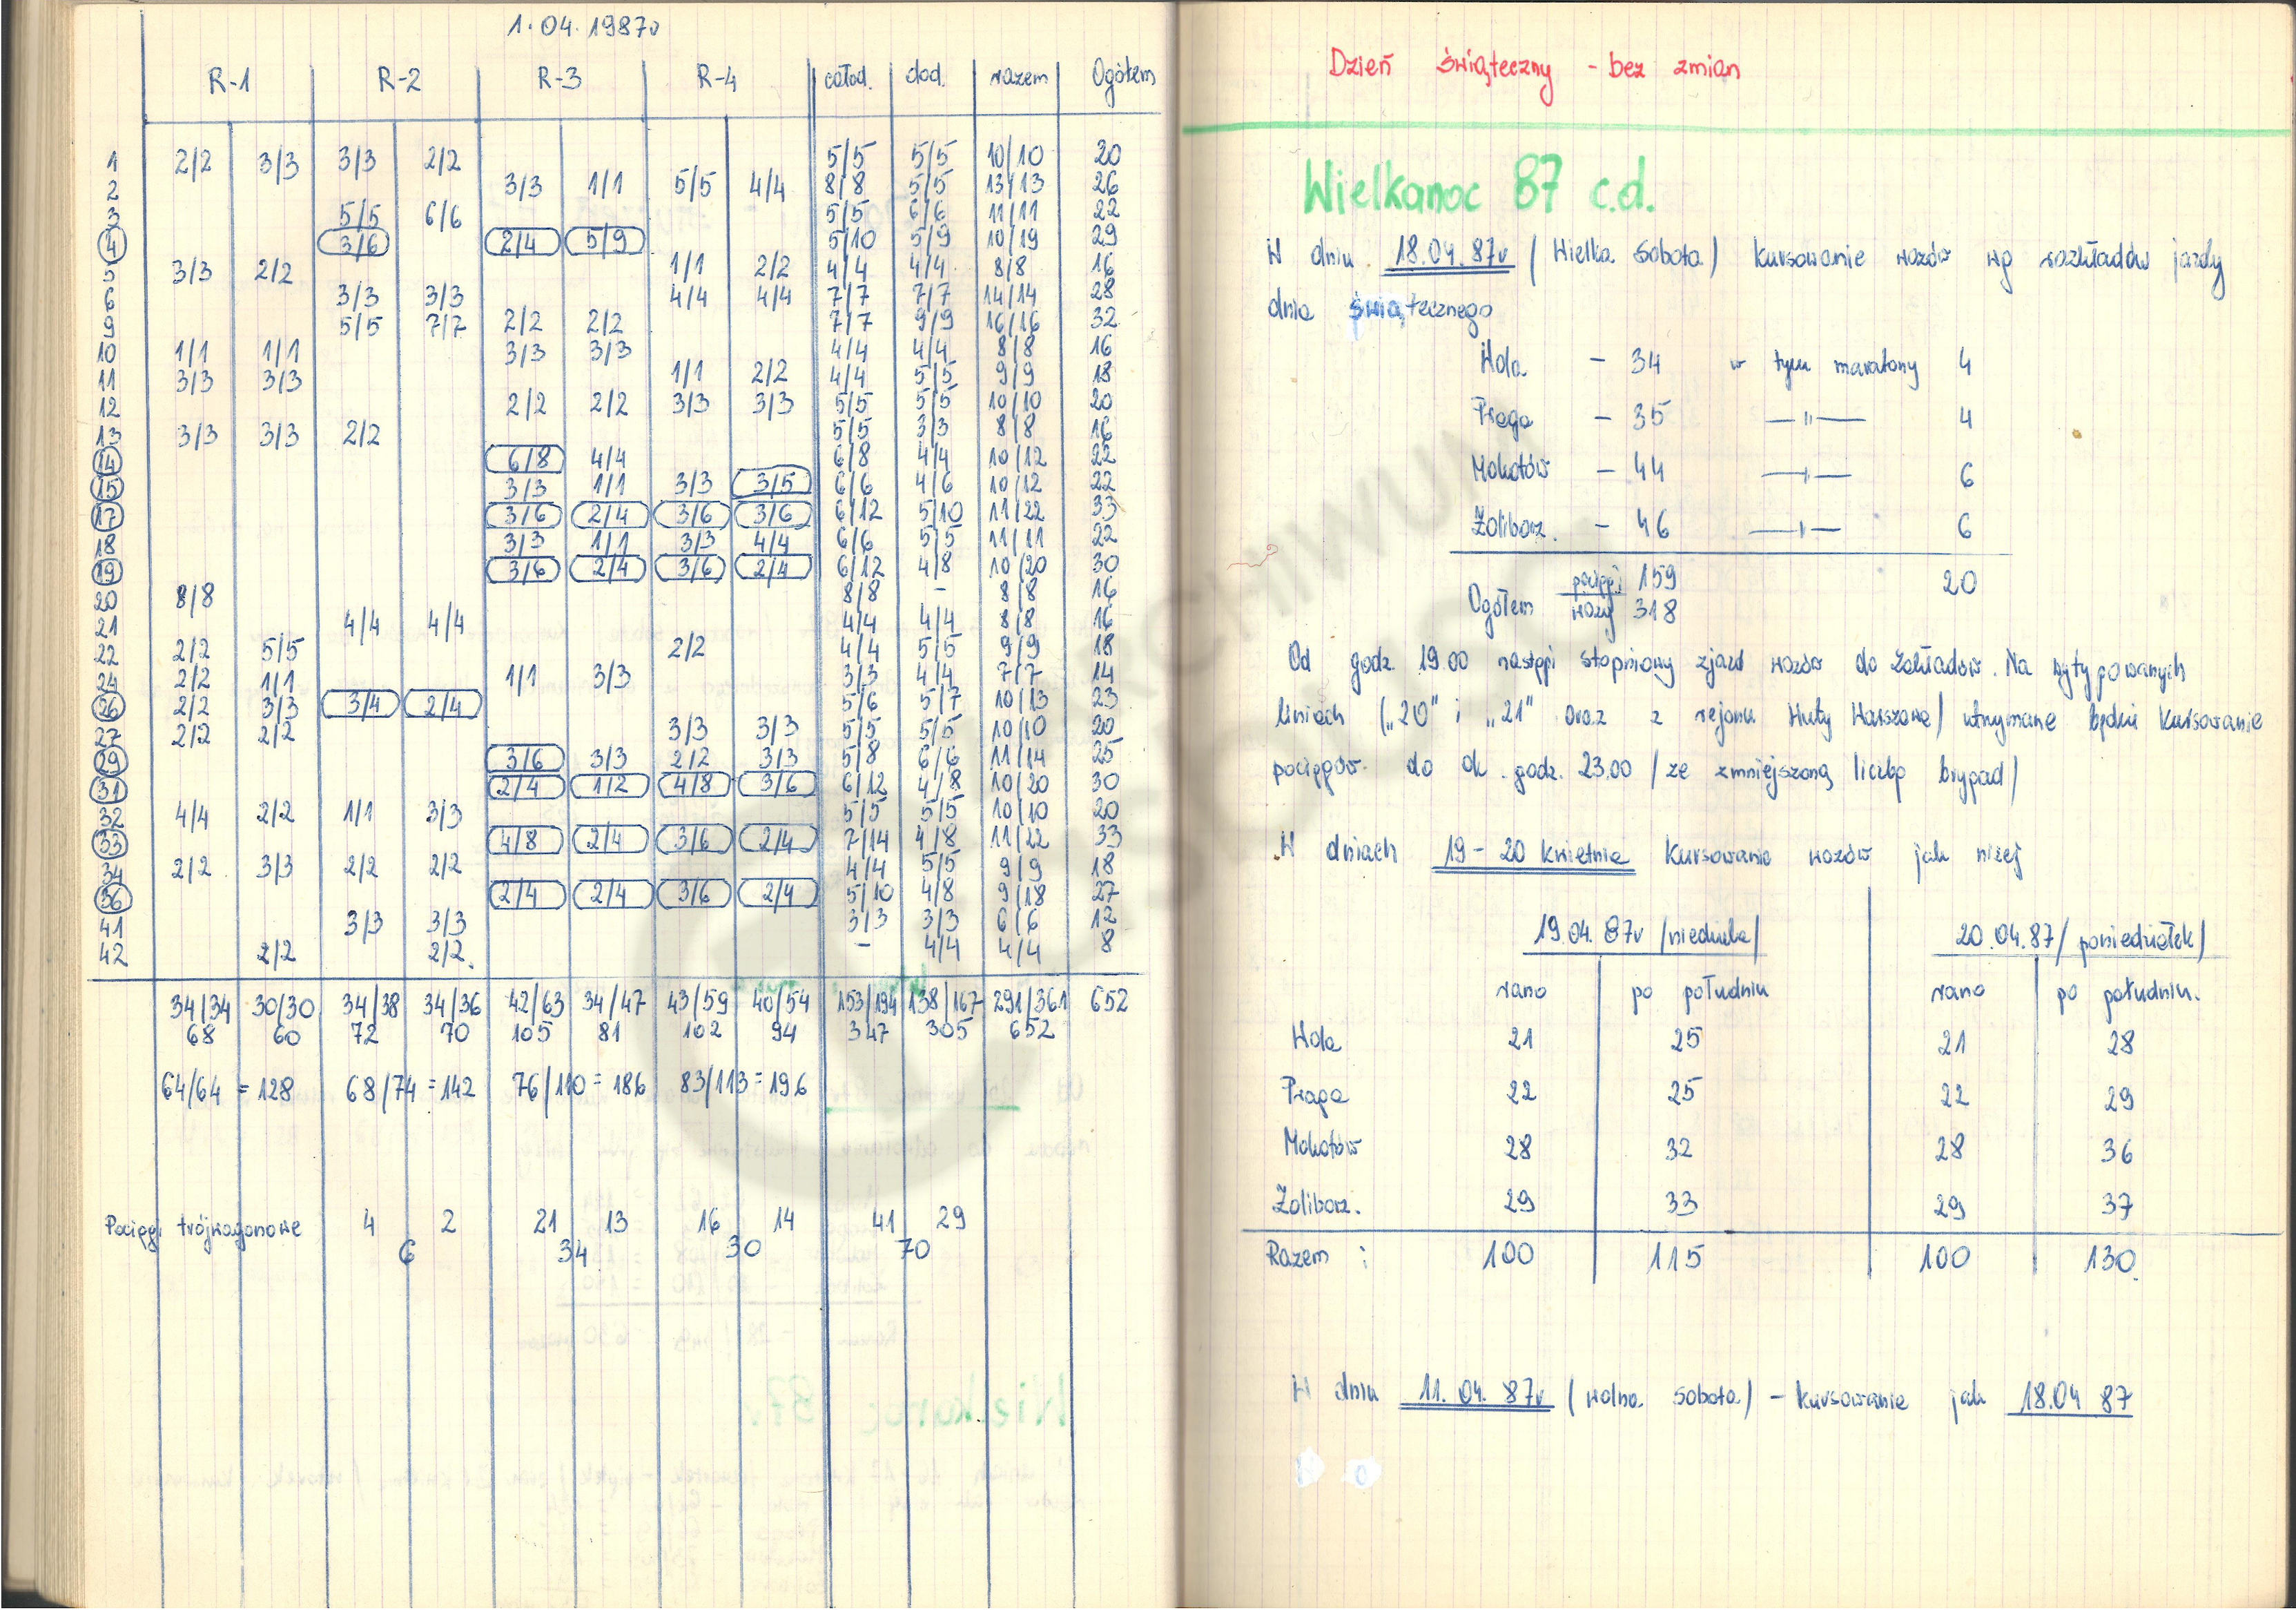 1.04.1987r
R-1 R-2 R-3 R-4 całod. dod. razem Ogółem
1 2/2 3/3 3/3 2/2 5/5 5/5 10/10 20
2 3/3 1/1 5/5 4/4 8/8 5/5 13/13 26
3 5/5 6/6 5/5 6/6 11/11 22
4 3/6 2/4 5/9 5/10 5/9 10/19 29
5 3/3 2/2 1/1 2/2 4/4 4/4 8/8 16
6 3/3 3/3 4/4 4/4 7/7 7/7 14/14 28
9 5/5 7/7 2/2 2/2 7/7 9/9 16/16 32
10 1/1 1/1 3/3 3/3 4/4 4/4 8/8 16
11 3/3 3/3 1/1 2/2 4/4 5/5 9/9 18
12 2/2 2/2 3/3 3/3 5/5 5/5 10/10 20
13 3/3 3/3 2/2 5/5 3/3 8/8 16
14 6/8 4/4 6/8 4/4 10/12 22
15 3/3 1/1 3/3 3/5 6/6 4/6 10/12 22
17 3/6 2/4 3/6 3/6 6/12 5/10 11/22 33
18 3/3 1/1 3/3 4/4 6/6 5/5 11/11 22
19 3/6 2/4 3/6 2/4 6/12 4/8 10/20 30
20 8/8 8/8 - 8/8 16
21 4/4 4/4 4/4 4/4 8/8 16
22 2/2 5/5 2/2 4/4 5/5 9/9 18
24 2/2 1/1 1/1 3/3 3/3 4/4 7/7 14
26 2/2 3/3 3/4 2/4 5/6 5/7 10/13 23
27 2/2 2/2 3/3 3/3 5/5 5/5 10/10 20
29 3/6 3/3 2/2 3/3 5/8 6/6 11/14 25
31 2/4 1/2 4/8 3/6 6/12 4/8 10/20 30
32 4/4 2/2 1/1 3/3 5/5 5/5 10/10 20
33 4/8 2/4 3/6 2/4 7/14 4/8 11/22 33
34 2/2 3/3 2/2 2/2 4/4 5/5 9/9 18
36 2/4 2/4 3/6 2/4 5/10 4/8 9/18 27
41 3/3 3/3 3/3 3/3 6/6 12
42 2/2 2/2. - 4/4 4/4 8
34/34 30/30 34/38 34/36 42/63 34/47 43/59 40/54 153/194 138/167 291/361 652
68 60 72 70 105 81 102 94 347 305 652
64/64 = 128 68/74 = 142 76/110 = 186 83/113 = 196
Pociągi trójwagonowe 4 2 21 13 16 14 41 29
6 34 30 70
Dzień świąteczny - bez zmian
Wielkanoc 87 c.d.
W dniu 18.04.87r (Wielka Sobota) kursowanie wozów wg rozkładów jazdy
dnia świątecznego
Wola - 34 w tym maratony 4
Praga - 35 —"— 4
Mokotów - 44 —"— 6
Żoliborz. - 46 —"— 6
Ogółem pociągi 159 20
wozy 318
Od godz. 19.00 nastąpi stopniowy zjazd wozów do Zakładów. Na wytypowanych
liniach ("20" i "21" oraz z rejonu Huty Warszawa) utrzymane będzie kursowanie
pociągów do ok. godz. 23.00 /ze zmniejszoną liczbą brygad/
W dniach 19-20 kwietnia kursowanie wozów jak niżej
19.04.87r /niedziela/ 20.04.87 /poniedziałek/
rano po południu rano po południu.
Wola 21 25 21 28
Praga 22 25 22 29
Mokotów 28 32 28 36
Żoliborz. 29 33 29 37
Razem : 100 115 100 130.
W dniu 11.04.87r (wolna sobota) - kursowanie jak 18.04 87